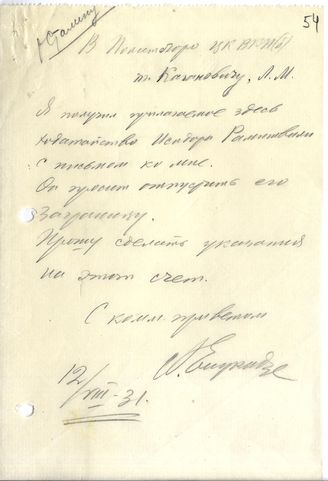 т. Сталину
54
В Политбюро ЦК ВКП(б)
тт. Кагановичу, Л. М.
Я получил прилагаемое здесь
ходатайство Исидора Рамишвили
с письмом ко мне.
Он просит отпустить его
заграницу.
Прошу сделать указания
на этот счет.
С комм. приветом
А. Енукидзе
12/VIII-31.